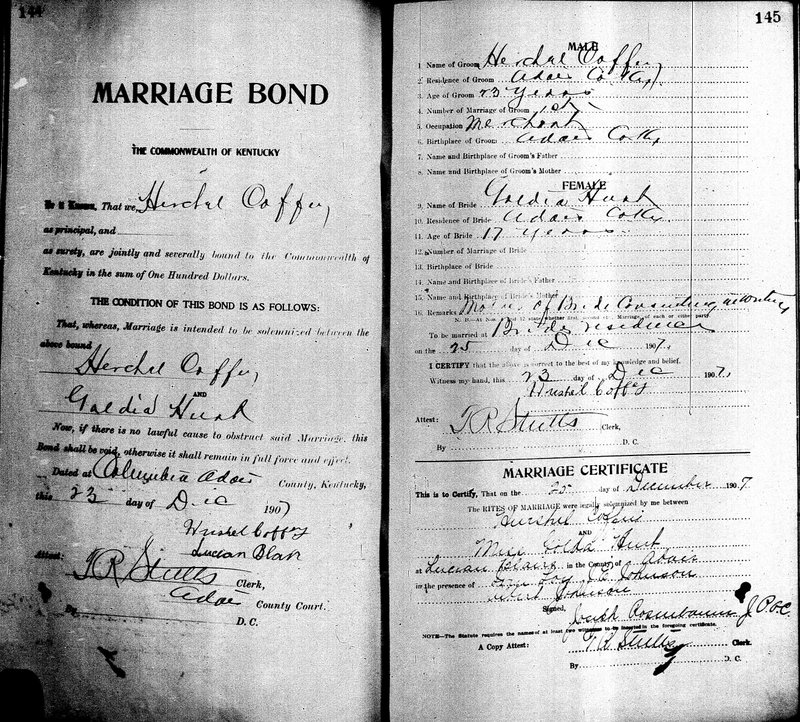 144
MARRIAGE BOND
THE COMMONWEALTH OF KENTUCKY
To it Known, That we, Herchel Coffey
as principal, and
as surety, are jointly and severally bound to the Commonwealth of
Kentucky in the sum of One Hundred Dollars.
THE CONDITION OF THIS BOND IS AS FOLLOWS:
That, whereas, Marriage is intended to be solemnized between the
above bound
Herchel Coffey
AND
Goldia Hurt
Now, if there is no lawful cause to obstruct said Marriage, this
Bond shall be void, otherwise it shall remain in full force and effect.
Dated at Columbia Adair County, Kentucky,
this 23 day of Dec 1907
Hershel Coffey
Lucian Blair
Attest:
T R Stults Clerk,
Adair County Court.
By D. C.
145
MALE
1 Name of Groom Herchel Coffey
2. Residence of Groom Adair Co Ky
3. Age of Groom 23 years
4. Number of Marriage of Groom 1st
5. Occupation Merchant
6. Birthplace of Groom Adair Co Ky
7. Name and Birthplace of Groom's Father
8. Name and Birthplace of Groom's Mother
FEMALE
9. Name of Bride Goldia Hurt
10. Residence of Bride Adair Co Ky
11. Age of Bride 17 years
12. Number of Marriage of Bride
13. Birthplace of Bride
14. Name and Birthplace of Bride's Father
15. Name and Birthplace of Bride's Mother
16. Remarks Mother of Bride Consenting in writing
To be married at Brides residence
on the 25 day of Dec 1907.
I CERTIFY that the above is correct to the best of my knowledge and belief.
Witness my hand, this 23 day of Dec 1907.
Hershel Coffey
Attest: T R Stults Clerk,
By D. C.
MARRIAGE CERTIFICATE
This is to Certify, That on the 25 day of December 1907
The RITES OF MARRIAGE were legally solemnized by me between
Hershel
AND
Miss Golda Hurt
at Lucian Blairs in the County of Adair
in the presence of Johnson
Johnson
Signed,
Rosenbaum J. P. A. C.
NOTE—The Statute requires the names of at least two witnesses to be inserted in the foregoing certificate.
A Copy Attest: T R Stults Clerk.
By D. C.